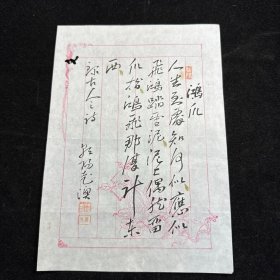 鴻爪
人生到處知何似應似
飛鴻踏雪泥泥上偶然留
爪指鴻飛那復計東
西
録古人之詩